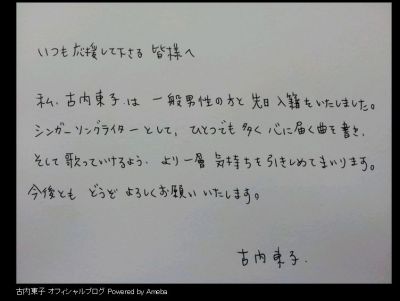 いつも応援して下さる 皆様へ
私、古内東子 は 一般男性の方と 先日 入籍をいたしました。
シンガーソングライターとして、ひとつでも 多く 心に届く曲を書き、
そして歌っていけるよう、より一層 気持ちを引きしめてまいります。
今後とも どうぞ よろしくお願いいたします。
古内東子.
古内東子 オフィシャルブログ Powered by Ameba